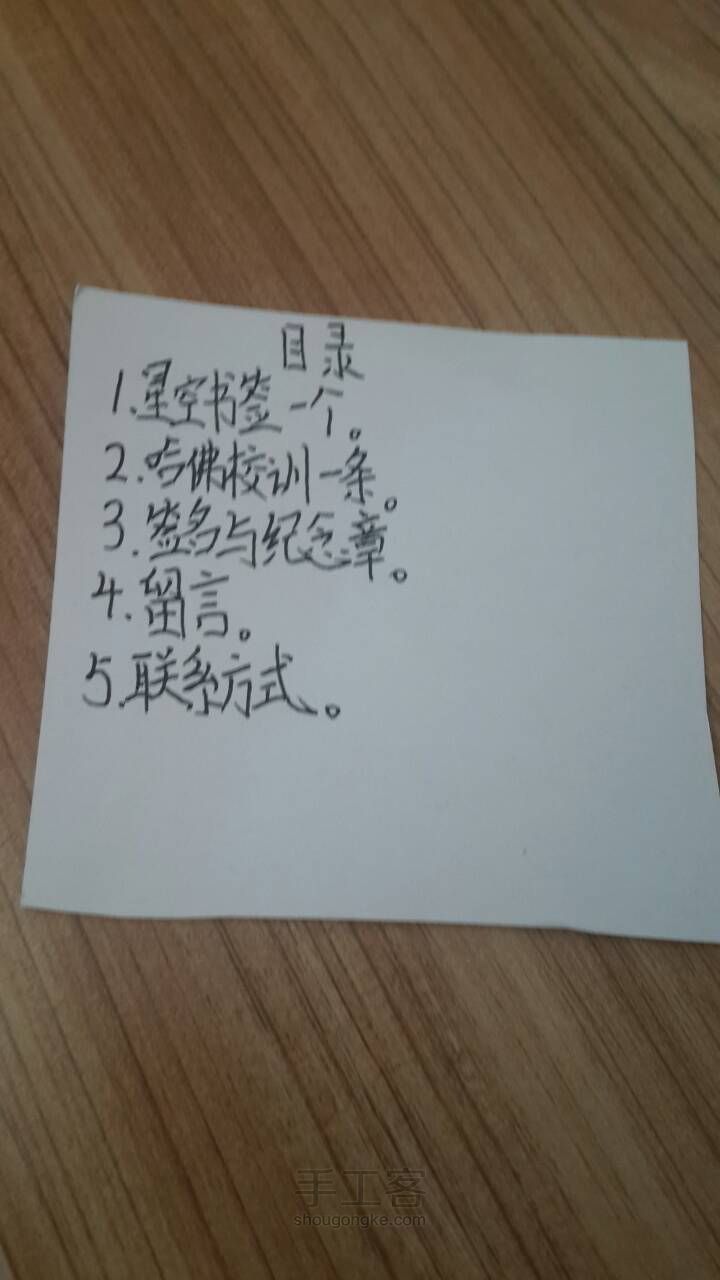 目录
1.星空书签一个。
2.哈佛校训一条。
3.签名与纪念章。
4.留言。
5.联系方式。
手工客
shougongke.com